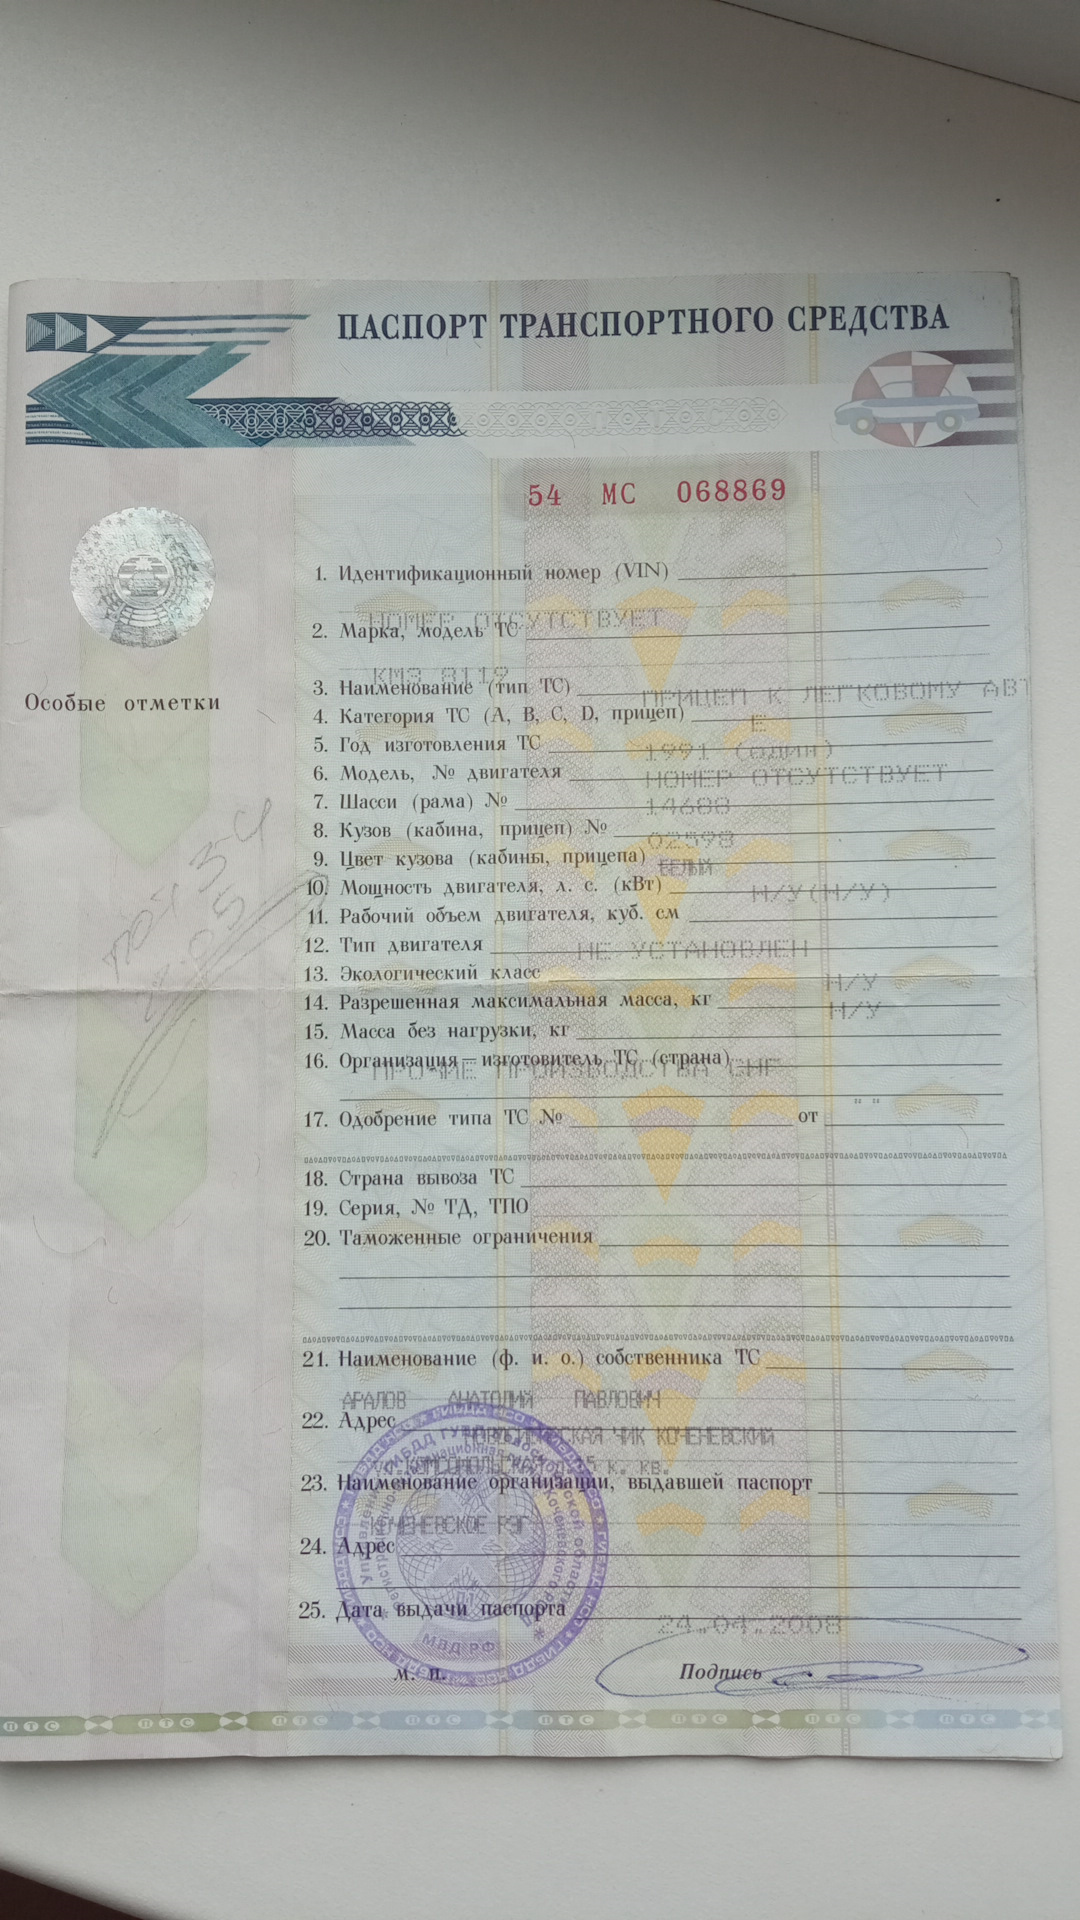 ПАСПОРТ ТРАНСПОРТНОГО СРЕДСТВА
54 МС 068869
Особые отметки
1. Идентификационный номер (VIN)
НОМЕР ОТСУТСТВУЕТ
2. Марка, модель ТС
КМЗ 8119
3. Наименование (тип ТС) ПРИЦЕП К ЛЕГКОВОМУ АВТ
4. Категория ТС (A, B, C, D, прицеп) Е
5. Год изготовления ТС 1991 (один)
6. Модель, № двигателя НОМЕР ОТСУТСТВУЕТ
7. Шасси (рама) № 14688
8. Кузов (кабина, прицеп) № 02598
9. Цвет кузова (кабины, прицепа) БЕЛЫЙ
10. Мощность двигателя, л. с. (кВт) Н/У(Н/У)
11. Рабочий объем двигателя, куб. см
12. Тип двигателя НЕ УСТАНОВЛЕН
13. Экологический класс Н/У
14. Разрешенная максимальная масса, кг Н/У
15. Масса без нагрузки, кг
16. Организация – изготовитель ТС (страна)
ПРОЧИЕ ПРОИЗВОДСТВА СНГ
17. Одобрение типа ТС № от " "
18. Страна вывоза ТС
19. Серия, № ТД, ТПО
20. Таможенные ограничения
21. Наименование (ф. и. о.) собственника ТС
АРАЛОВ АНАТОЛИЙ ПАВЛОВИЧ
22. Адрес
НОВОСИБИРСКАЯ ЧИК КОЧЕНЕВСКИЙ
КОМСОМОЛЬСКАЯ к. кв.
23. Наименование организации, выдавшей паспорт
КОЧЕНЕВСКОЕ РЭГ
24. Адрес
25. Дата выдачи паспорта 24.04.2008
МВД РФ
м. п. Подпись
ПТС ПТС ПТС ПТС ПТС ПТС ПТС ПТС